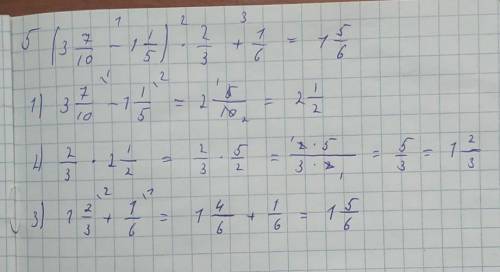 5 (3 7/10 - 1 1/5) · 2/3 + 1/6 = 1 5/6
1) 3 7/10 - 1 1/5 = 2 5/10 = 2 1/2
2) 2/3 · 2 1/2 = 2/3 · 5/2 = 2 · 5 / 3 · 2 = 5/3 = 1 2/3
3) 1 2/3 + 1/6 = 1 4/6 + 1/6 = 1 5/6